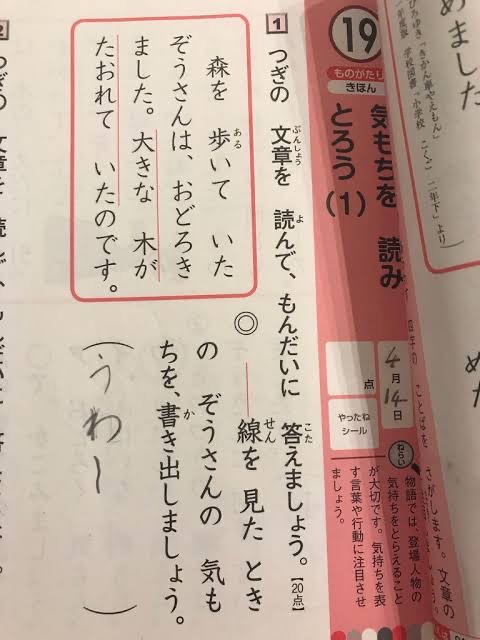 めました
ひろゆき「きかん車やえもん」
学校図書「小学校 こくご 二年下」より)
19
ものがたり
きほん
気もちを 読み
とろう(1)
4月14日
点
やったね
シール
ねらい
物語では、登場人物の
気持ちをとらえること
が大切です。気持ちを表
す言葉や行動に注目させ
ましょう。
1 つぎの 文章を 読んで、もんだいに 答えましょう。【20点】
森を 歩いて いた
ぞうさんは、おどろき
ました。大きな 木が
たおれて いたのです。
◎ 線を 見た とき
の ぞうさんの 気も
ちを、書き出しましょう。
(うわー)
2 つぎの 文章を